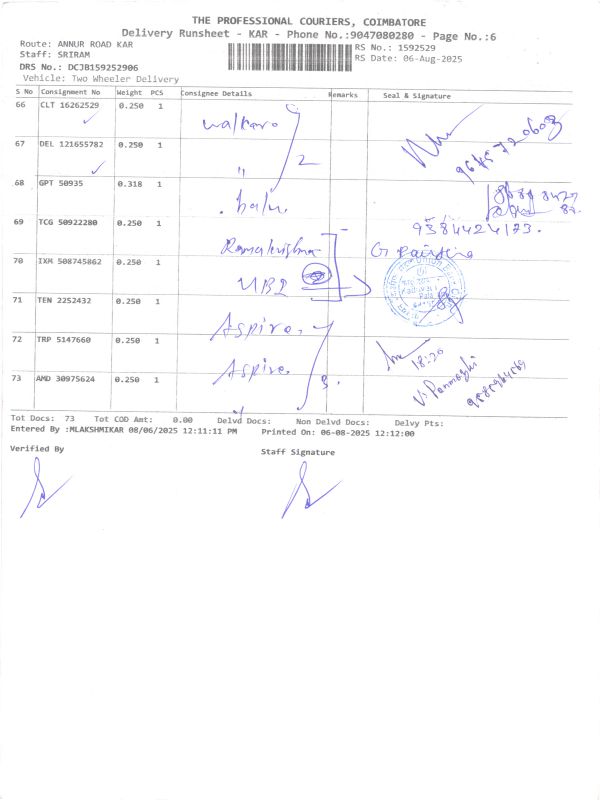 THE PROFESSIONAL COURIERS, COIMBATORE
Delivery Runsheet - KAR - Phone No.:9047080280 - Page No.:6
Route: ANNUR ROAD KAR
RS No.: 1592529
Staff: SRIRAM
RS Date: 06-Aug-2025
DRS No.: DCJB159252906
Vehicle: Two Wheeler Delivery
S No Consignment No Weight PCS Consignee Details Remarks Seal & Signature
66 CLT 16262529 0.250 1
67 DEL 121655782 0.250 1 " 2
68 GPT 50935 0.318 1 balu
69 TCG 50922280 0.250 1 Ramakrishna 9384424123.
70 IXM 508745862 0.250 1 UBI
71 TEN 2252432 0.250 1 Aspire.
72 TRP 5147660 0.250 1 Aspire. 18:20
73 AMD 30975624 0.250 1 " 3.
Tot Docs: 73 Tot COD Amt: 0.00 Delvd Docs: Non Delvd Docs: Delvy Pts:
Entered By :MLAKSHMIKAR 08/06/2025 12:11:11 PM Printed On: 06-08-2025 12:12:00
Verified By
Staff Signature